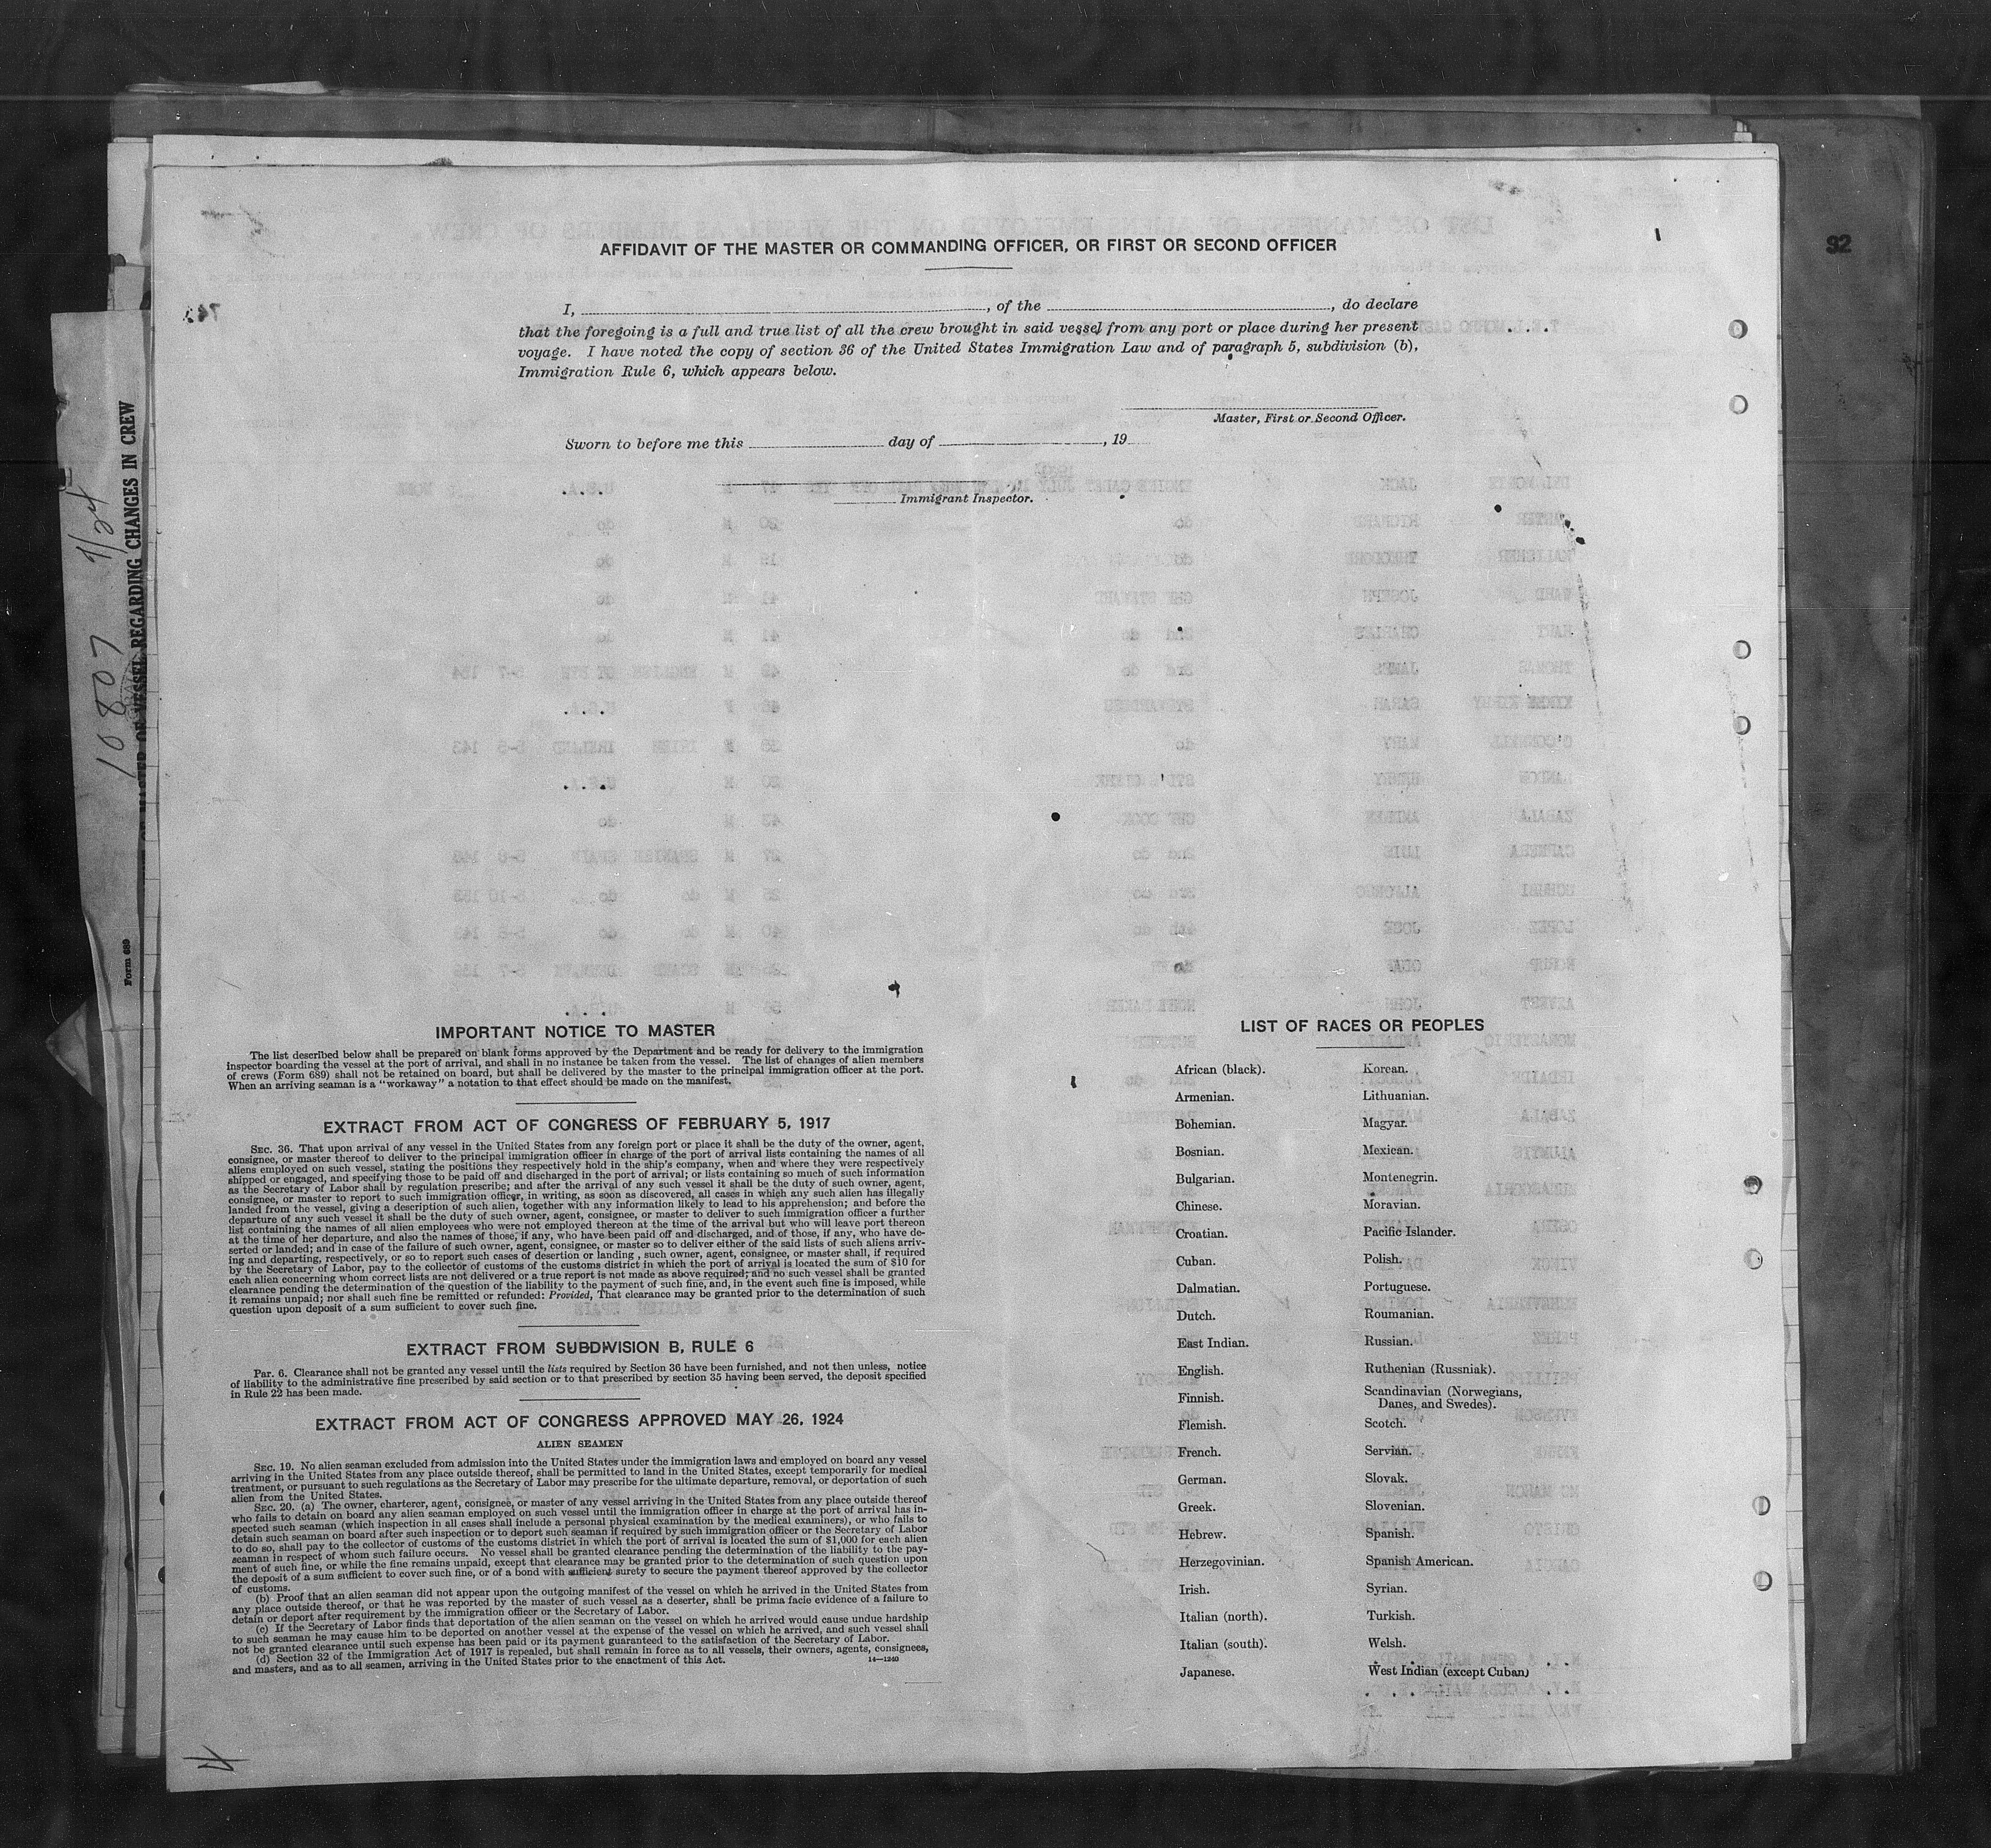 AFFIDAVIT OF THE MASTER OR COMMANDING OFFICER, OR FIRST OR SECOND OFFICER
I, , of the , do declare
that the foregoing is a full and true list of all the crew brought in said vessel from any port or place during her present
voyage. I have noted the copy of section 36 of the United States Immigration Law and of paragraph 5, subdivision (b),
Immigration Rule 6, which appears below.
Master, First or Second Officer.
Sworn to before me this day of , 19
Immigrant Inspector.
92
10807 9/24
OF MASTER OF VESSEL REGARDING CHANGES IN CREW
Form 689
IMPORTANT NOTICE TO MASTER
The list described below shall be prepared on blank forms approved by the Department and be ready for delivery to the immigration
inspector boarding the vessel at the port of arrival, and shall in no instance be taken from the vessel. The list of changes of alien members
of crews (Form 689) shall not be retained on board, but shall be delivered by the master to the principal immigration officer at the port.
When an arriving seaman is a "workaway" a notation to that effect should be made on the manifest.
EXTRACT FROM ACT OF CONGRESS OF FEBRUARY 5, 1917
SEC. 36. That upon arrival of any vessel in the United States from any foreign port or place it shall be the duty of the owner, agent,
consignee, or master thereof to deliver to the principal immigration officer in charge of the port of arrival lists containing the names of all
aliens employed on such vessel, stating the positions they respectively hold in the ship's company, when and where they were respectively
shipped or engaged, and specifying those to be paid off and discharged in the port of arrival; or lists containing so much of such information
as the Secretary of Labor shall by regulation prescribe; and after the arrival of any such vessel it shall be the duty of such owner, agent,
consignee, or master to report to such immigration officer, in writing, as soon as discovered, all cases in which any such alien has illegally
landed from the vessel, giving a description of such alien, together with any information likely to lead to his apprehension; and before the
departure of any such vessel it shall be the duty of such owner, agent, consignee, or master to deliver to such immigration officer a further
list containing the names of all alien employees who were not employed thereon at the time of the arrival but who will leave port thereon
at the time of her departure, and also the names of those, if any, who have been paid off and discharged, and of those, if any, who have de-
serted or landed; and in case of the failure of such owner, agent, consignee, or master so to deliver either of the said lists of such aliens arriv-
ing and departing, respectively, or so to report such cases of desertion or landing , such owner, agent, consignee, or master shall, if required
by the Secretary of Labor, pay to the collector of customs of the customs district in which the port of arrival is located the sum of $10 for
each alien concerning whom correct lists are not delivered or a true report is not made as above required; and no such vessel shall be granted
clearance pending the determination of the question of the liability to the payment of such fine, and, in the event such fine is imposed, while
it remains unpaid; nor shall such fine be remitted or refunded: Provided, That clearance may be granted prior to the determination of such
question upon deposit of a sum sufficient to cover such fine.
EXTRACT FROM SUBDIVISION B, RULE 6
Par. 6. Clearance shall not be granted any vessel until the lists required by Section 36 have been furnished, and not then unless, notice
of liability to the administrative fine prescribed by said section or to that prescribed by section 35 having been served, the deposit specified
in Rule 22 has been made.
EXTRACT FROM ACT OF CONGRESS APPROVED MAY 26, 1924
ALIEN SEAMEN
SEC. 19. No alien seaman excluded from admission into the United States under the immigration laws and employed on board any vessel
arriving in the United States from any place outside thereof, shall be permitted to land in the United States, except temporarily for medical
treatment, or pursuant to such regulations as the Secretary of Labor may prescribe for the ultimate departure, removal, or deportation of such
alien from the United States.
SEC. 20. (a) The owner, charterer, agent, consignee, or master of any vessel arriving in the United States from any place outside thereof
who fails to detain on board any alien seaman employed on such vessel until the immigration officer in charge at the port of arrival has in-
spected such seaman (which inspection in all cases shall include a personal physical examination by the medical examiners), or who fails to
detain such seaman on board after such inspection or to deport such seaman if required by such immigration officer or the Secretary of Labor
to do so, shall pay to the collector of customs of the customs district in which the port of arrival is located the sum of $1,000 for each alien
seaman in respect of whom such failure occurs. No vessel shall be granted clearance pending the determination of the liability to the pay-
ment of such fine, or while the fine remains unpaid, except that clearance may be granted prior to the determination of such question upon
the deposit of a sum sufficient to cover such fine, or of a bond with sufficient surety to secure the payment thereof approved by the collector
of customs.
(b) Proof that an alien seaman did not appear upon the outgoing manifest of the vessel on which he arrived in the United States from
any place outside thereof, or that he was reported by the master of such vessel as a deserter, shall be prima facie evidence of a failure to
detain or deport after requirement by the immigration officer or the Secretary of Labor.
(c) If the Secretary of Labor finds that deportation of the alien seaman on the vessel on which he arrived would cause undue hardship
to such seaman he may cause him to be deported on another vessel at the expense of the vessel on which he arrived, and such vessel shall
not be granted clearance until such expense has been paid or its payment guaranteed to the satisfaction of the Secretary of Labor.
(d) Section 32 of the Immigration Act of 1917 is repealed, but shall remain in force as to all vessels, their owners, agents, consignees,
and masters, and as to all seamen, arriving in the United States prior to the enactment of this Act. 14—1240
LIST OF RACES OR PEOPLES
African (black).
Armenian.
Bohemian.
Bosnian.
Bulgarian.
Chinese.
Croatian.
Cuban.
Dalmatian.
Dutch.
East Indian.
English.
Finnish.
Flemish.
French.
German.
Greek.
Hebrew.
Herzegovinian.
Irish.
Italian (north).
Italian (south).
Japanese.
Korean.
Lithuanian.
Magyar.
Mexican.
Montenegrin.
Moravian.
Pacific Islander.
Polish.
Portuguese.
Roumanian.
Russian.
Ruthenian (Russniak).
Scandinavian (Norwegians,
Danes, and Swedes).
Scotch.
Servian.
Slovak.
Slovenian.
Spanish.
Spanish American.
Syrian.
Turkish.
Welsh.
West Indian (except Cuban)